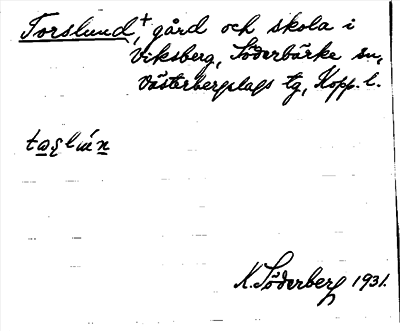 Torslund,+ gård och skola i
Viksberg, Söderbärke sn,
Västerbergslags tg, Kopp. l.
K. Söderberg 1931.